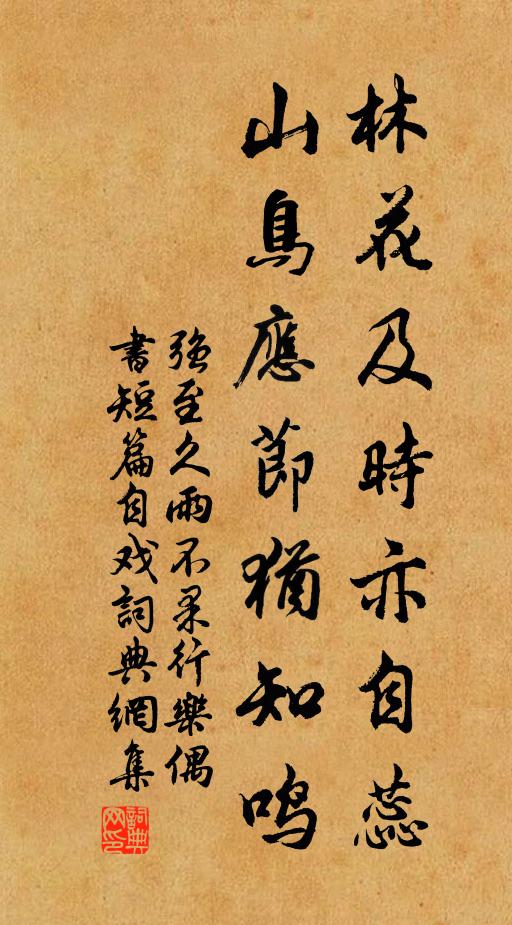 林花及時亦自蕊
山鳥應節猶知鸣
强至久雨不果行樂偶
書短篇自戏詞典網集
詞典网印